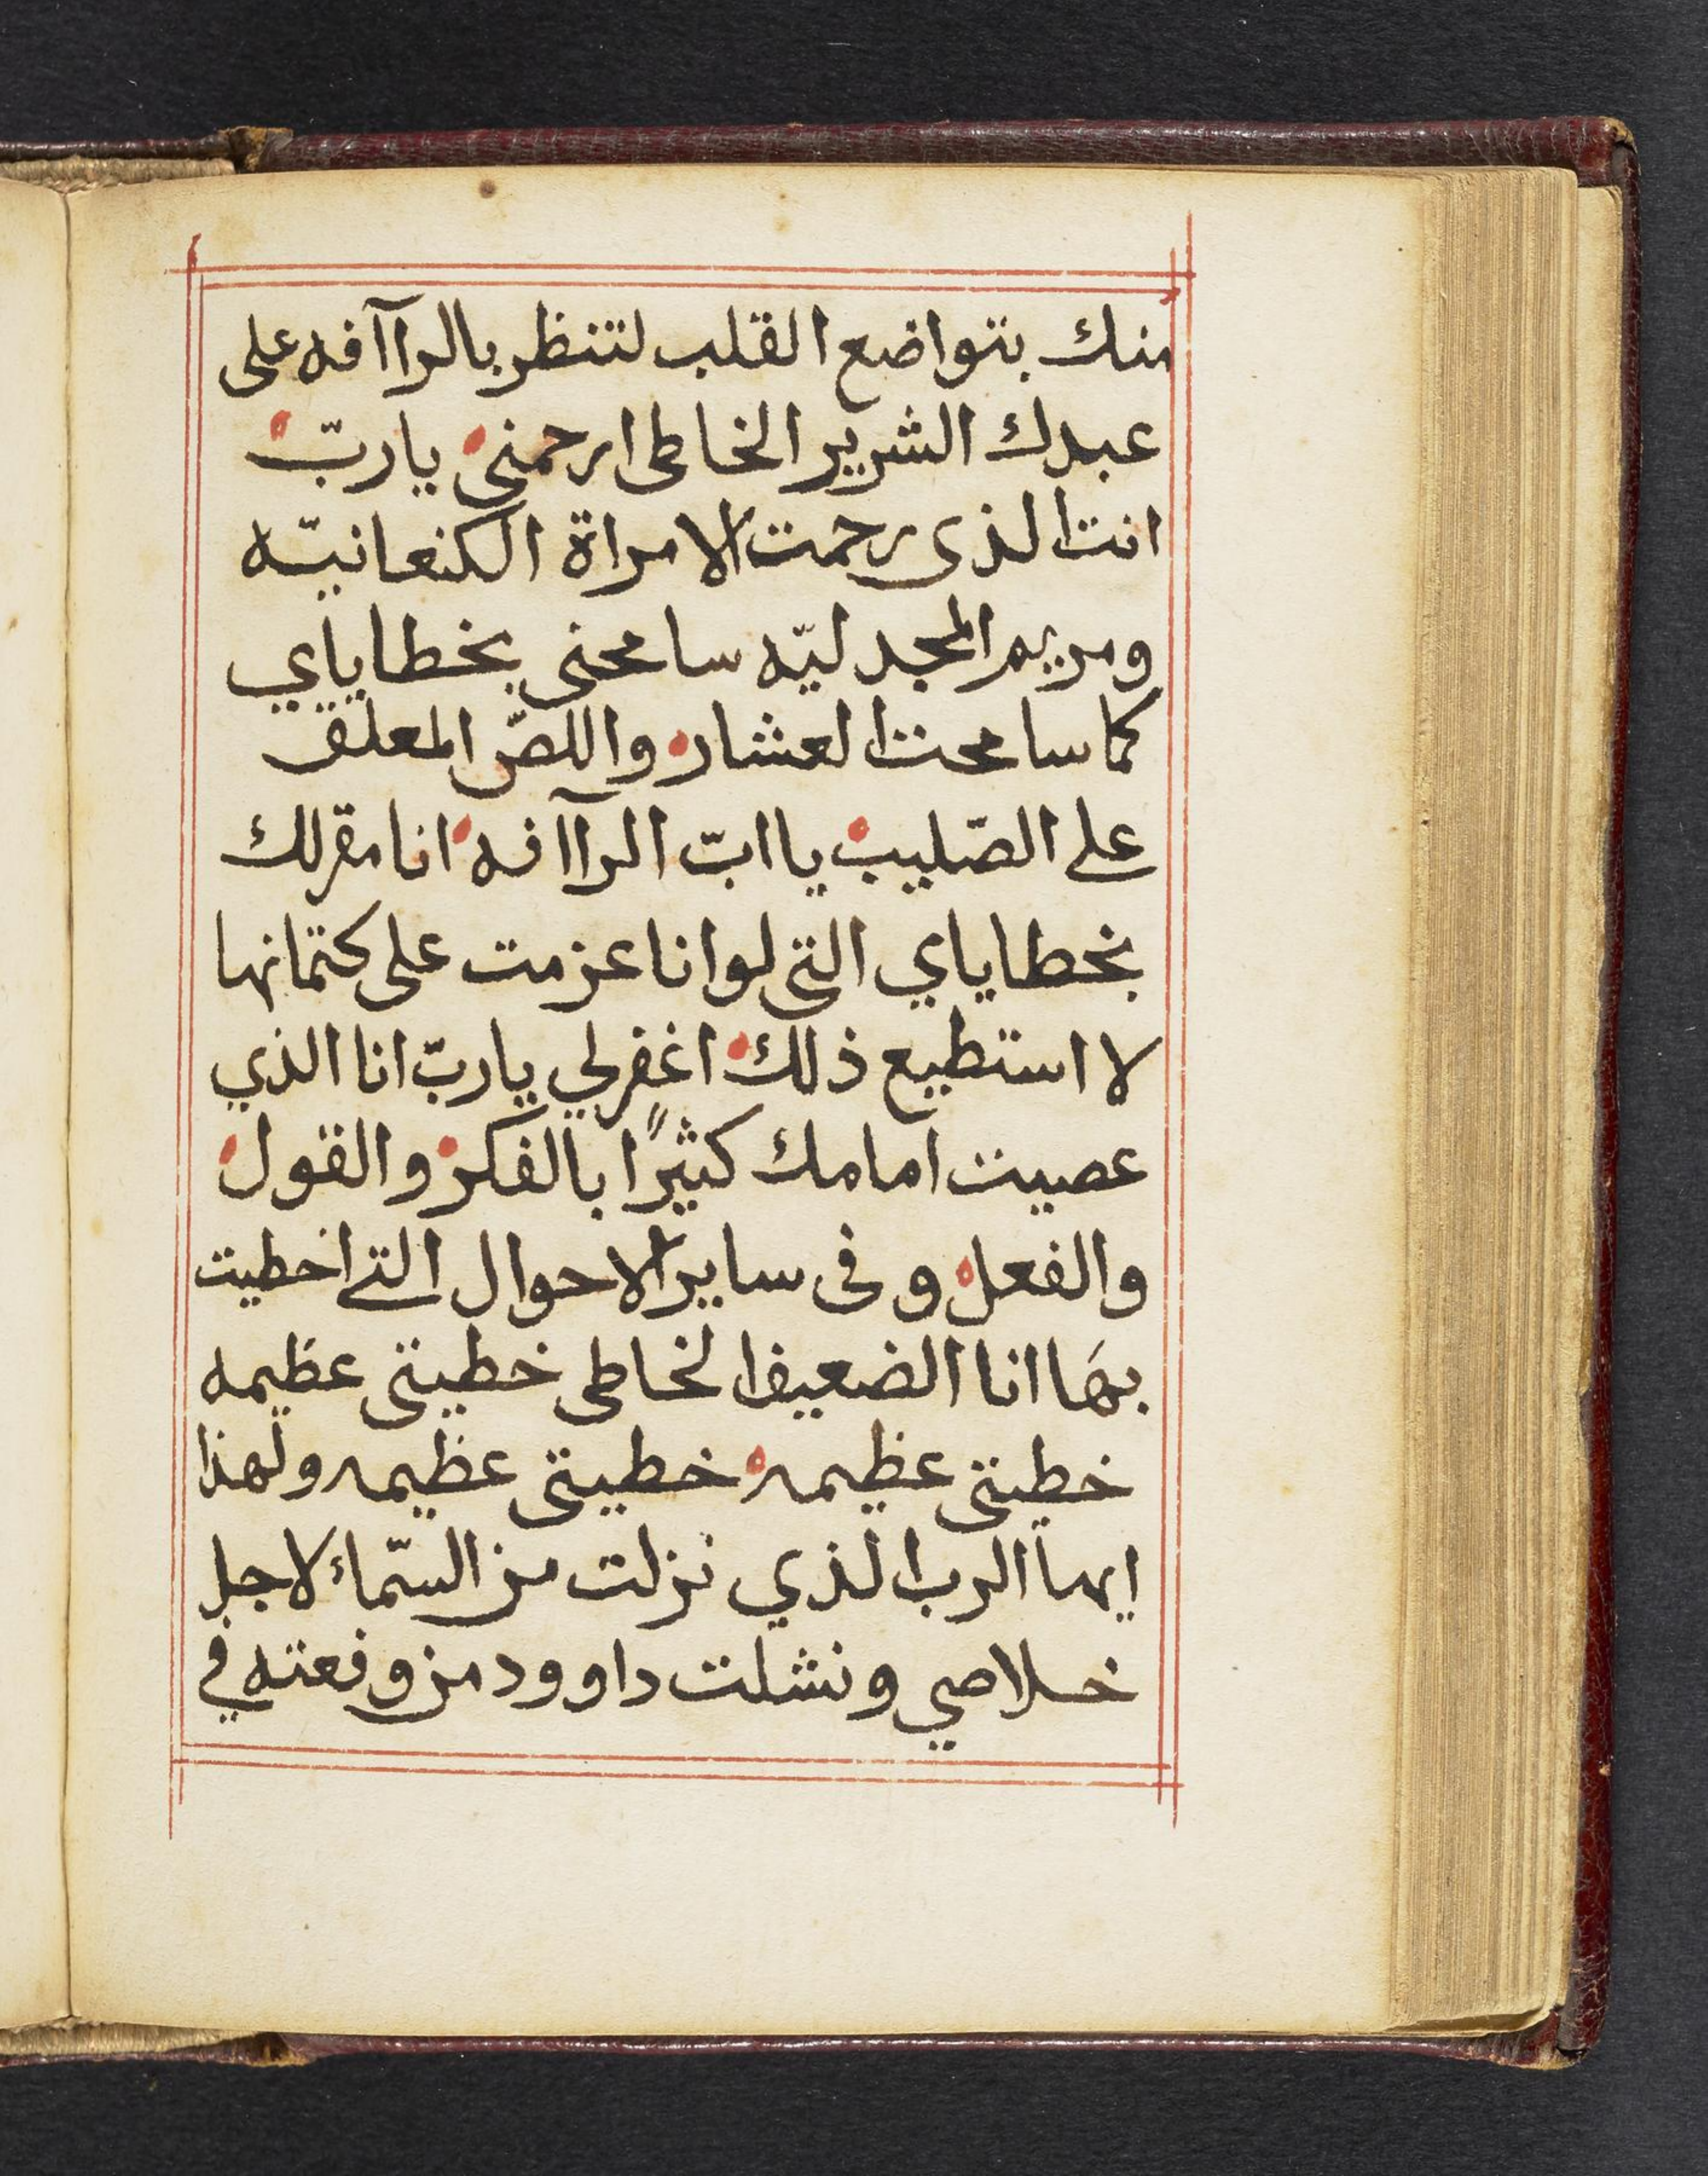 منك بتواضع القلب لتنظر بالراآفه على
عبدك الشرير الخاطى ارحمنى يا ربّ
انت الذى رحمت الامراة الكنعانيّه
ومريم المجدليّه سامحنى بخطاياي
كما سامحت العشار واللصّ المعلق
على الصّليب يا ابّ الراآفه انا مقر لك
بخطاياي التى لو انا عزمت على كتمانها
لا استطيع ذلك اغفر لي يا ربّ انا الذي
عصيت امامك كثيرًا بالفكر والقول
والفعل وفى ساير الاحوال التى اخطيت
بهَا انا الضعيف الخاطى خطيتى عظيمه
خطيتى عظيمه خطيتى عظيمه ولهذا
ايها الرب الذي نزلت من السّمائ لاجل
خلاصي ونشلت داوود من وقعته في